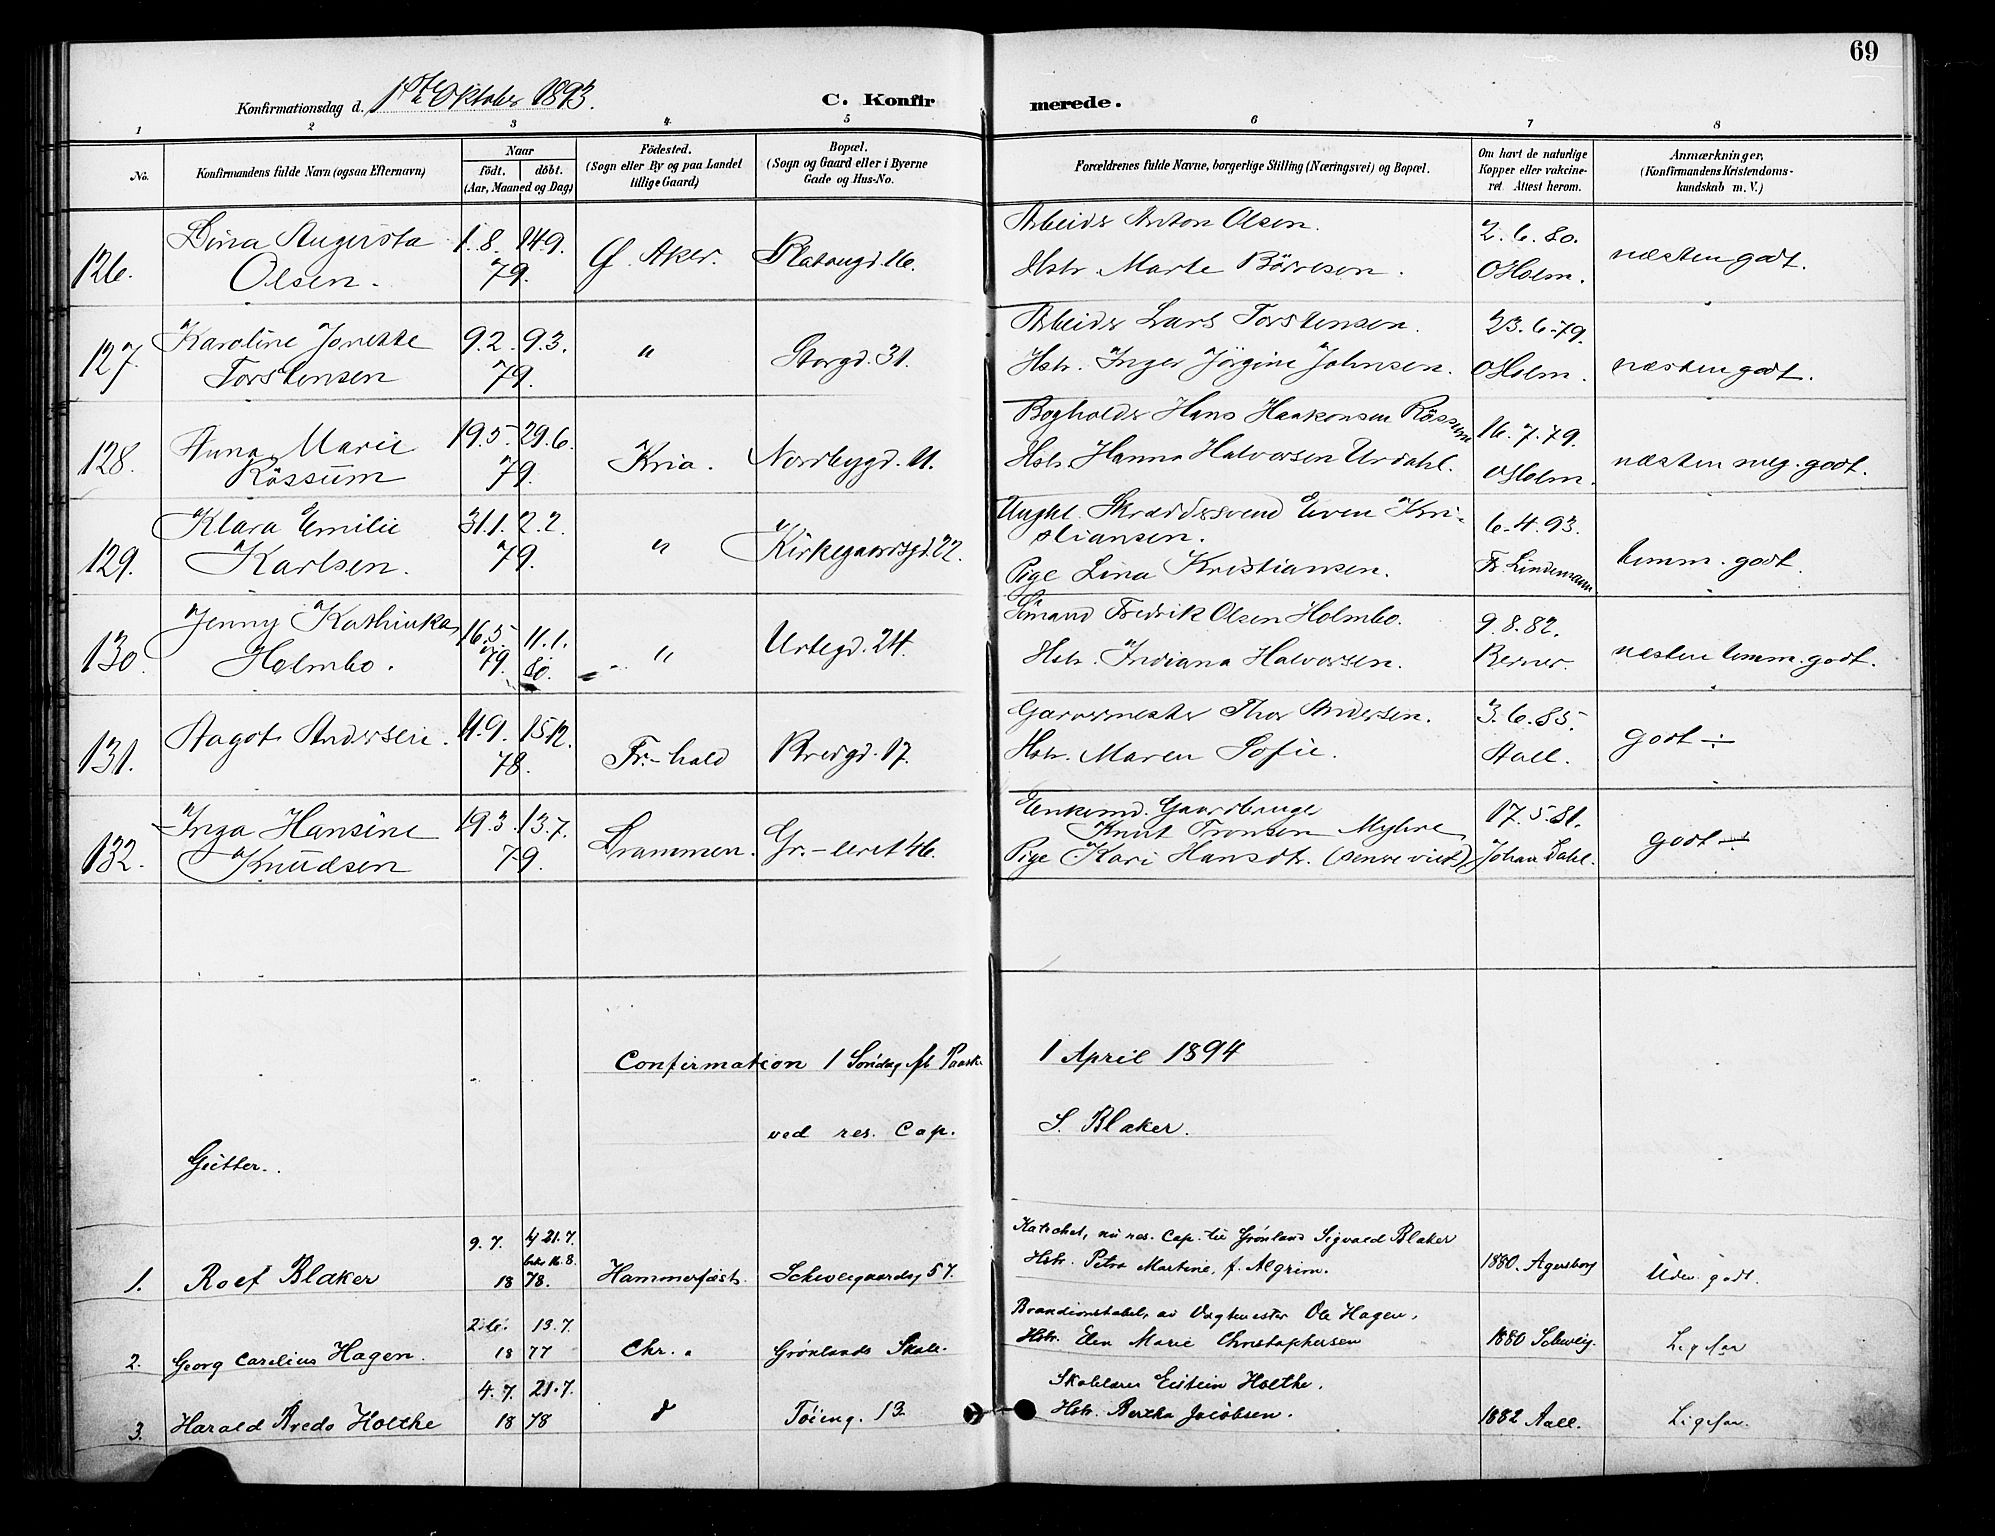 69
Konfirmationsdag d. 1ste Oktober 1893. C. Konfirmerede.
1 2 3 4 5 6 7 8
No. Konfirmandens fulde Navn (ogsaa Efternavn) Naar födt. döbt. (Aar, Maaned og Dag) Födested. (Sogn eller By og paa Landet tillige Gaard) Bopæl. (Sogn og Gaard eller i Byerne Gade og Hus-No. Forældrenes fulde Navne, borgerlige Stilling (Næringsvei) og Bopæl. Om havt de naturlige Kopper eller vakcineret. Attest herom. Anmærkninger, (Konfirmandens Kristendomskundskab m. V.)
126. Dina Augusta Olsen. 1.8. 14.9. 79. Ø. Aker. Platougd. 16. Arbeider Anton Olsen.
Hstr. Marte Börresen. 2.6.80. O Holm. næsten godt.
127. Karoline Jonette Torstensen 9.2. 9.3. 79. " Storgd. 31. Arbeider Lars Torstensen.
Hstr. Inger Jörgine Johnsen. 23.6.79. O Holm. næsten godt.
128. Anna Marie Rössum 19.5. 29.6. 79. Kria. Nordbygd. 11. Bogholder Hans Haakonsen Rössum
Hstr. Hanna Halvorsen Urdahl. 16.7.79. O Holm. næsten meg. godt.
129. Klara Emilie Karlsen. 31.1. 2.2. 79. " Kirkegaardsgd. 22. Ungkl. Skræddersvend Even Kristiansen.
Pige Lina Kristiansen. 6.4.93. Fr. Lindemann temm. godt.
130. Jenny Kathinka Holmbo. 16.5. 79. 11.1. 80. " Urtegd. 24. Sömand Fredrik Olsen Holmbo.
Hstr. Indiana Halvorsen. 9.8.82. Berner. næsten temm. godt.
131. Aagot Andersen. 11.9. 15.12. 78. Fr.-hald Bredgd. 17. Garvermester Thor Andersen.
Hstr. Maren Sofie. 3.6.85. Aall. godt ÷
132. Inga Hansine Knudsen 19.3. 13.7. 79. Drammen. Gr.-leret 46. Enkemd. Gaardbruger
Knut Tronsen Myhre
Pige Kari Hansdtr. (senere viet) 17.5.81. Johan Dahl. godt ÷
Confirmation 1 Søndag eft Paask. 1 April 1894
ved res. Cap. S. Blaker.
Gutter.
1. Roef Blaker 9.7. 21.7. 16.8. 18 78. Hammerfest. Schweigaardsg 57. Katechet, nu res. Cap. til Grønland Sigvald Blaker
Hstr. Petra Martine, f. Algrim. 1880. Agersborg Udm. godt.
2. Georg Carelius Hagen. 2.6. 13.7. 18 77 Chr. Grønlands Skole. Brandkonstabel, Vagtmester Ole Hagen,
Hstr. Elen Marie Christophersen 1880 Schweig. Ligesaa
3. Harald Bredo Holthe 4.7. 21.7. 18 78 d Tøieng. 13. Skolelærer Eistein Holthe.
Hstr. Bertha Jacobsen. 1882 Aall. Ligesaa.